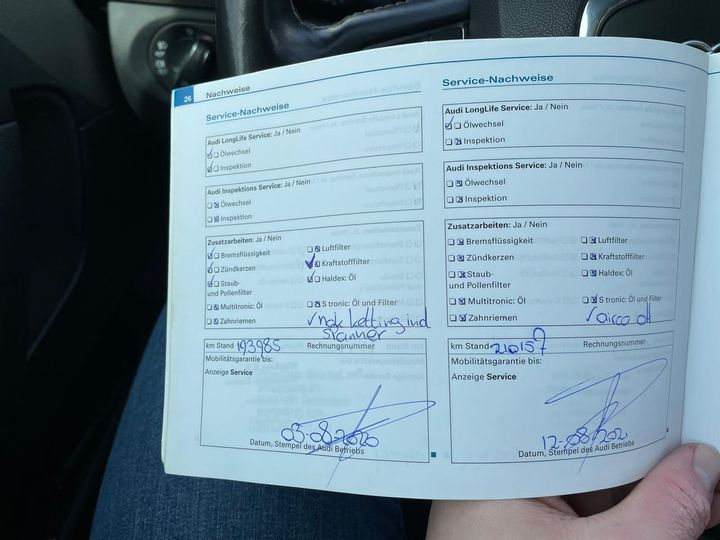 26 Nachweise
Service-Nachweise
Audi LongLife Service: Ja / Nein
Ölwechsel
Inspektion
Audi Inspektions Service: Ja / Nein
Ölwechsel
Inspektion
Zusatzarbeiten: Ja / Nein
Bremsflüssigkeit
Luftfilter
Zündkerzen
Kraftstofffilter
Staub-
und Pollenfilter
Haldex: Öl
Multitronic: Öl
S tronic: Öl und Filter
Zahnriemen
nok ketting ind
spanner
km Stand 193985
Rechnungsnummer
Mobilitätsgarantie bis:
Anzeige Service
03-08-2020
Datum, Stempel des Audi Betriebs
Service-Nachweise
Audi LongLife Service: Ja / Nein
Ölwechsel
Inspektion
Audi Inspektions Service: Ja / Nein
Ölwechsel
Inspektion
Zusatzarbeiten: Ja / Nein
Bremsflüssigkeit
Luftfilter
Zündkerzen
Kraftstofffilter
Staub-
und Pollenfilter
Haldex: Öl
Multitronic: Öl
S tronic: Öl und Filter
Zahnriemen
airco
km Stand 210157
Rechnungsnummer
Mobilitätsgarantie bis:
Anzeige Service
12-08-2021
Datum, Stempel des Audi Betriebs